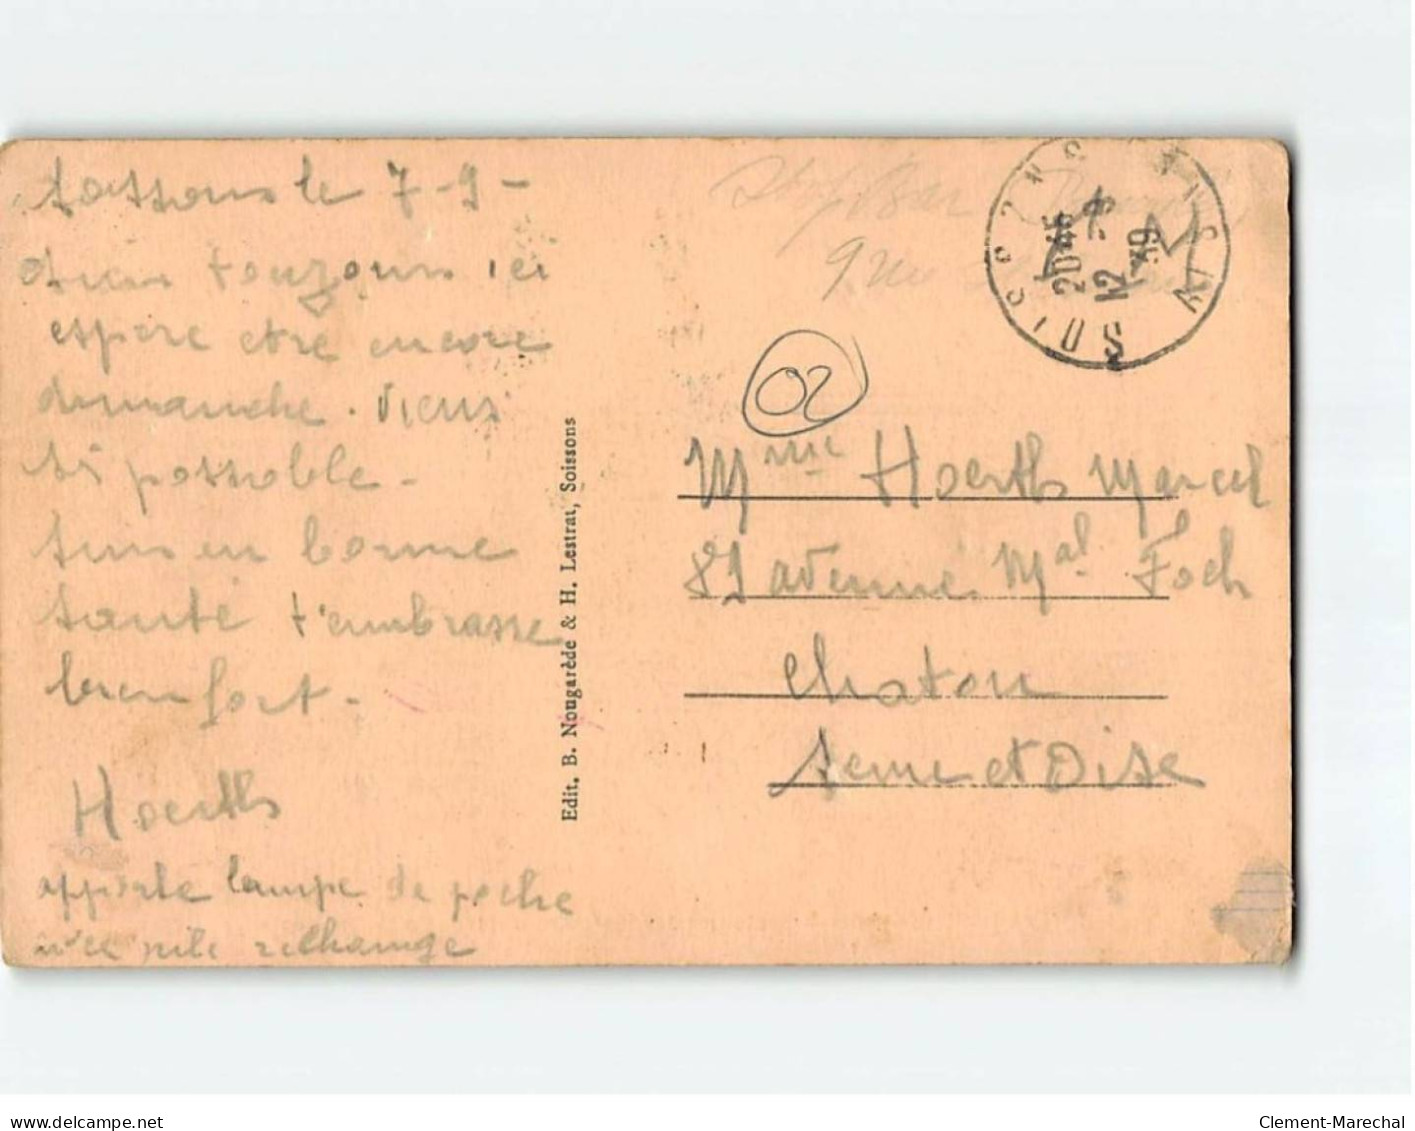 Soissons le 7-9-
suis toujours ici
espère etre encore
dimanche. Viens
si possible-
suis en bonne
santé t'embrasse
bien fort-
Hoerth
apporte lampe de poche
avec pile rechange
Edit. B. Nougarède & H. Lestrat, Soissons
9 rue
SOISSONS
AISNE
20 45
12 -9
39
02
Mme Hoerth Marcel
81 avenue Mal Foch
Chatou
Seine et Oise
www.delcampe.net
Clement-Marechal